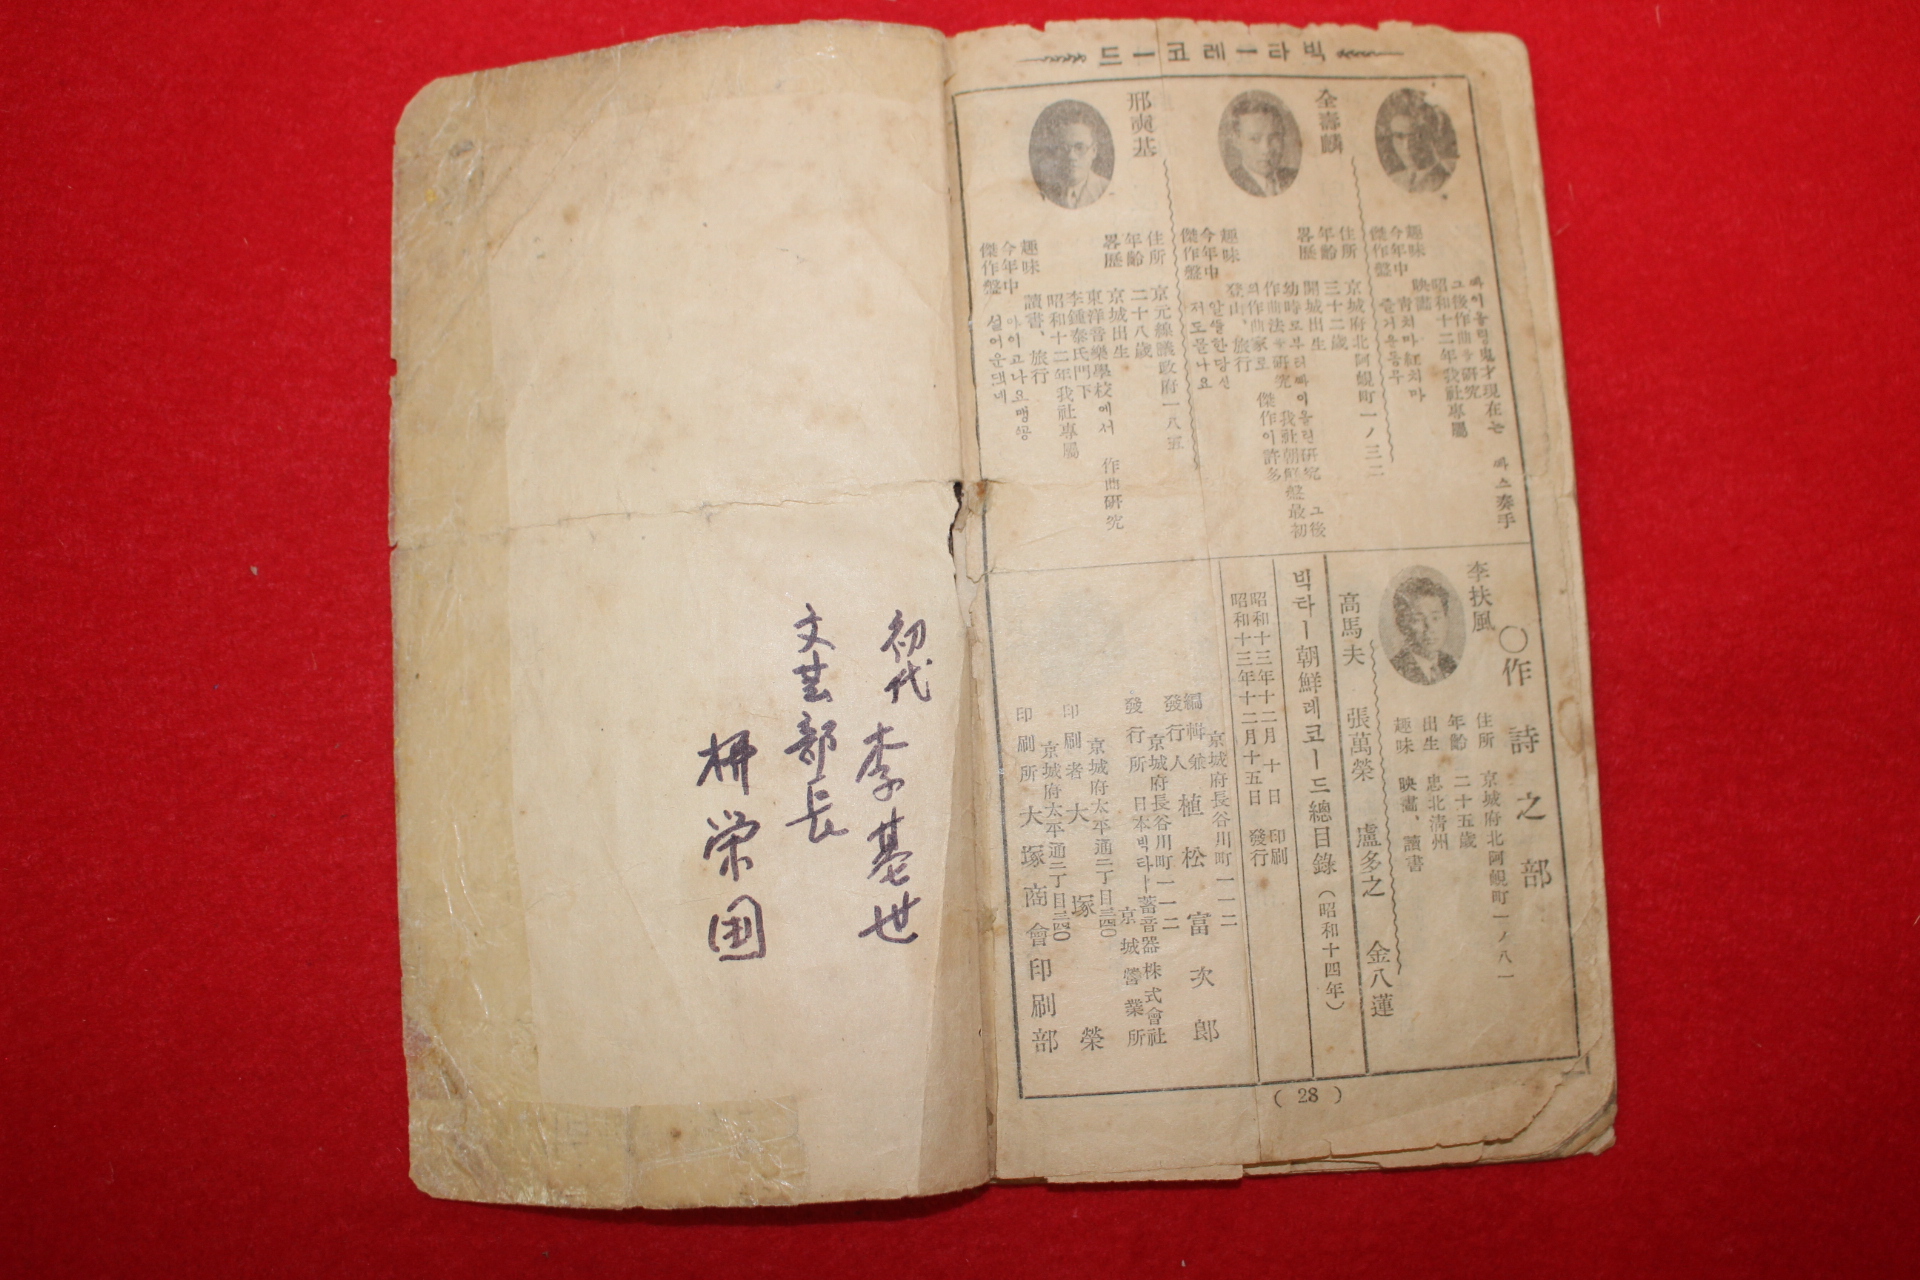 빅타ー레코ード
빠이올린鬼才現在는 빠스奏手
그後作曲을硏究
昭和十二年我社專屬
趣味 映畵
今年中
傑作盤
靑치마紅치마
즐거운동무
全壽麟
住所 京城府北阿峴町一ノ三二
年齡 三十二歲
畧歷 開城出生
幼時로부터빠이올린硏究 그後
作曲法을硏究 我社朝鮮盤最初
의作曲家로 傑作이許多
趣味 登山、旅行
今年中
傑作盤
알뜰한당신
저도몰나요
邢奭基
住所 京元線議政府一八五
年齡 二十八歲
畧歷 京城出生
東洋音樂學校에서 作曲硏究
李鍾泰氏門下
昭和十二年我社專屬
趣味 讀書、旅行
今年中
傑作盤
아이고나요맹꽁
설어운댁네
○作詩之部
李扶風
住所 京城府北阿峴町一ノ八一
年齡 二十五歲
出生 忠北淸州
趣味 映畵、讀書
高馬夫 張萬榮 盧多之 金八蓮
빅타ー朝鮮레코ード總目錄(昭和十四年)
昭和十三年十二月十日 印刷
昭和十三年十二月十五日 發行
京城府長谷川町一一二
編輯兼
發行人 植松富次郎
京城府長谷川町一一二
發行所 日本빅타ー蓄音器株式會社
京城營業所
京城府太平通二丁目三四〇
印刷者 大塚榮
京城府太平通二丁目三四〇
印刷所 大塚商會印刷部
( 28 )
初代 李基世
文芸部長
栄国